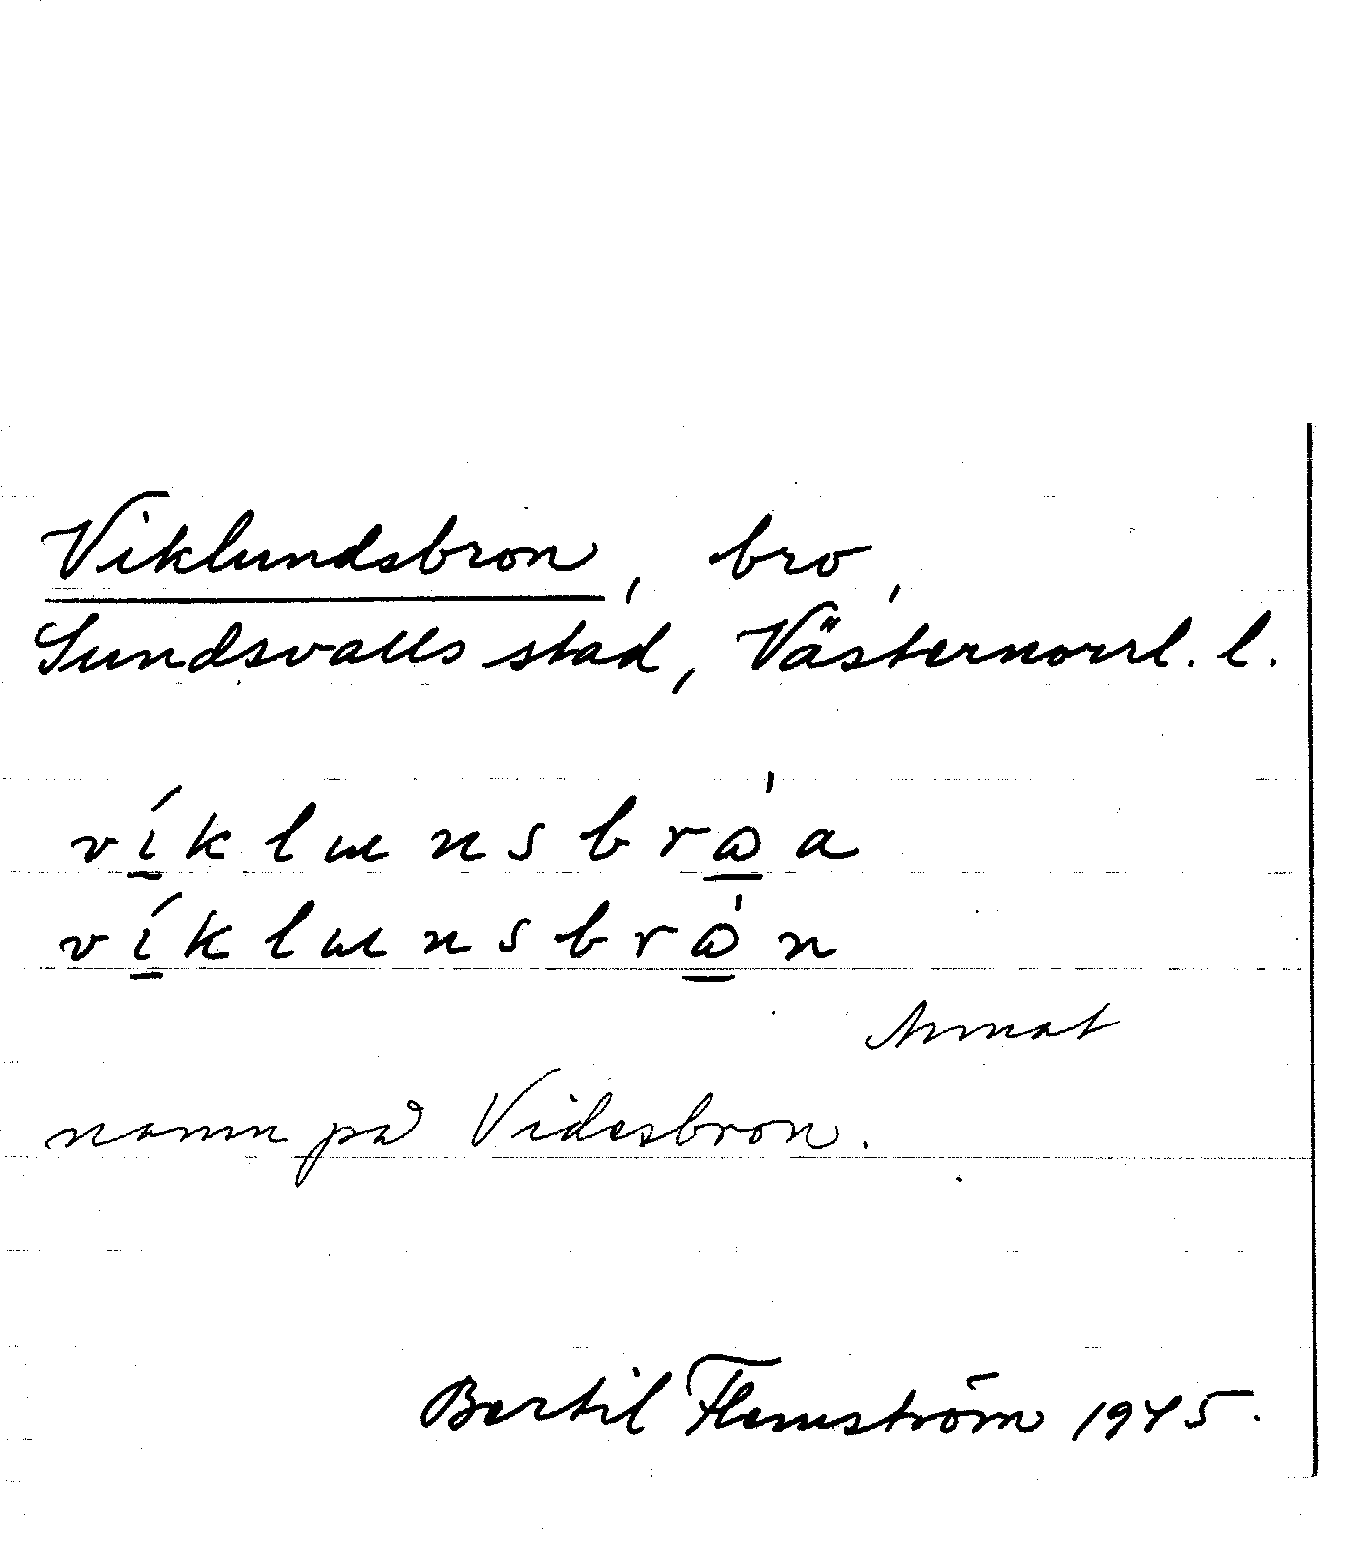 Viklundsbron, bro,
Sundsvalls stad, Västernorrl. l.
víklɯnsbrὼa
víklɯnsbrὼn
Annat
namn på Videsbron.
Bertil Flemström 1945.